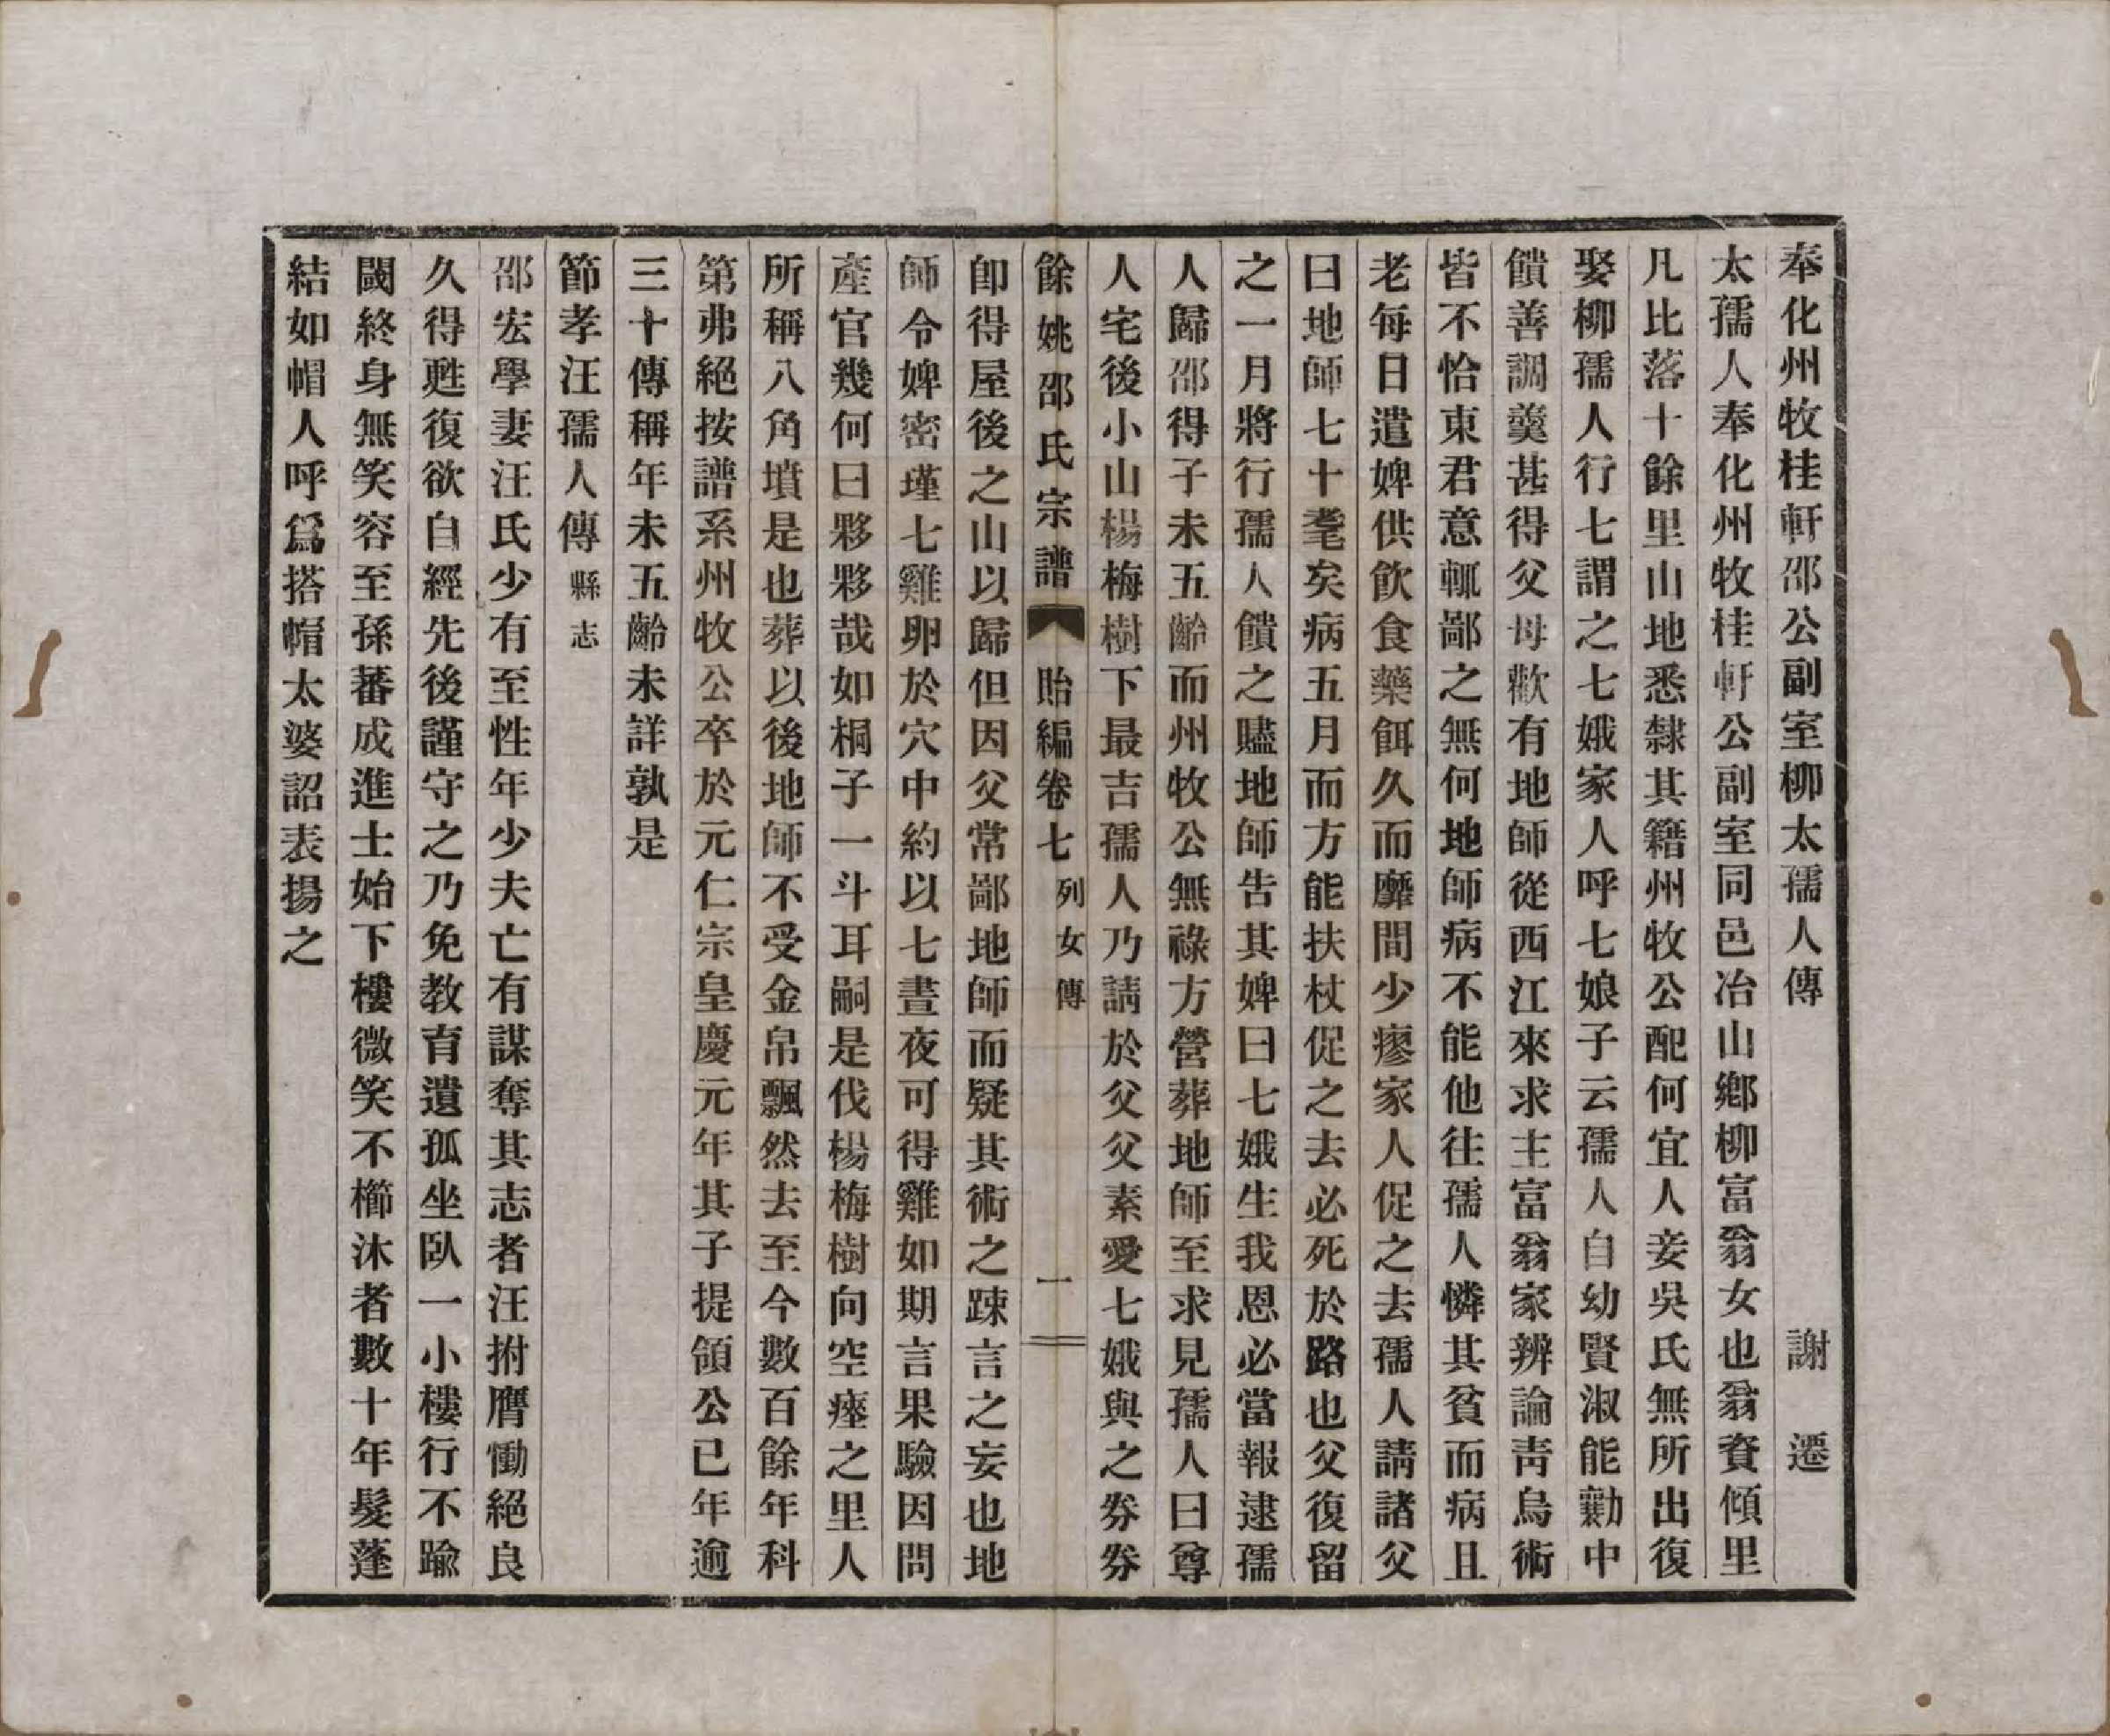 奉化州牧桂軒邵公副室柳太孺人傳　謝　遷
太孺人奉化州牧桂軒公副室同邑冶山鄉柳富翁女也翁資傾里
凡比落十餘里山地悉隸其籍州牧公配何宜人妾吳氏無所出復
娶柳孺人行七謂之七娥家人呼七娘子云孺人自幼賢淑能勷中
饋善調羹甚得父母歡有地師從西江來求主富翁家辨論靑烏術
皆不恰東君意輒鄙之無何地師病不能他往孺人憐其貧而病且
老每日遣婢供飲食藥餌久而靡間少瘳家人促之去孺人請諸父
曰地師七十耄矣病五月而方能扶杖促之去必死於路也父復留
之一月將行孺人饋之贐地師告其婢曰七娥生我恩必當報逮孺
人歸邵得子未五齡而州牧公無祿方營葬地師至求見孺人曰尊
人宅後小山楊梅樹下最吉孺人乃請於父父素愛七娥與之券券
餘姚邵氏宗譜　貽編卷七　列女傳　一
卽得屋後之山以歸但因父常鄙地師而疑其術之踈言之妄也地
師令婢密瑾七雞卵於穴中約以七晝夜可得雞如期言果驗因問
產官幾何曰夥夥哉如桐子一斗耳嗣是伐楊梅樹向空瘞之里人
所稱八角墳是也葬以後地師不受金帛飄然去至今數百餘年科
第弗絕按譜系州牧公卒於元仁宗皇慶元年其子提領公已年逾
三十傳稱年未五齡未詳孰是
節孝汪孺人傳　縣志
邵宏學妻汪氏少有至性年少夫亡有謀奪其志者汪拊膺慟絕良
久得甦復欲自經先後謹守之乃免教育遺孤坐臥一小樓行不踰
閾終身無笑容至孫蕃成進士始下樓微笑不櫛沐者數十年髮蓬
結如帽人呼爲搭帽太婆詔表揚之